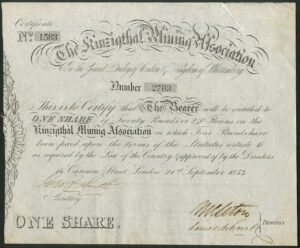 Certificate
No. 1583
The Kinzigthal Mining Association
In the Grand Duchy of Baden & Kingdom of Wurtemberg
Number 2703
This is to Certify that The Bearer will be entitled to
ONE SHARE of Twenty Pounds or 240 Florins in the
Kinzigthal Mining Association on which Four Pounds have
been paid upon the terms of the Statutes article 6
as required by the Law of the Country & approved of by the Directors
Cannon Street London 21st September 1853
Secretary
Directors
ONE SHARE.